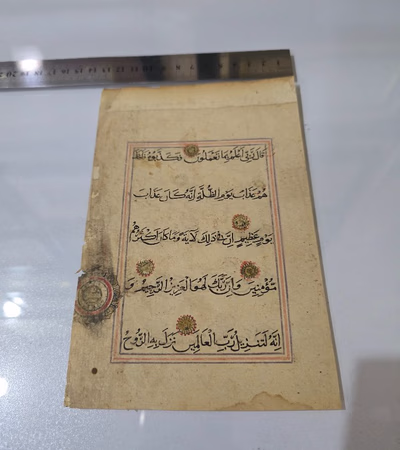 قَالَ رَبِّي أَعْلَمُ بِمَا تَعْمَلُونَ فَكَذَّبُوهُ فَأَخَذَ
هُمْ عَذَابُ يَوْمِ الظُّلَّةِ إِنَّهُ كَانَ عَذَابَ
يَوْمٍ عَظِيمٍ إِنَّ فِي ذَلِكَ لَآيَةً وَمَا كَانَ أَكْثَرُهُمْ
مُؤْمِنِينَ وَإِنَّ رَبَّكَ لَهُوَ الْعَزِيزُ الرَّحِيمُ وَ
إِنَّهُ لَتَنْزِيلُ رَبِّ الْعَالَمِينَ نَزَلَ بِهِ الرُّوحُ